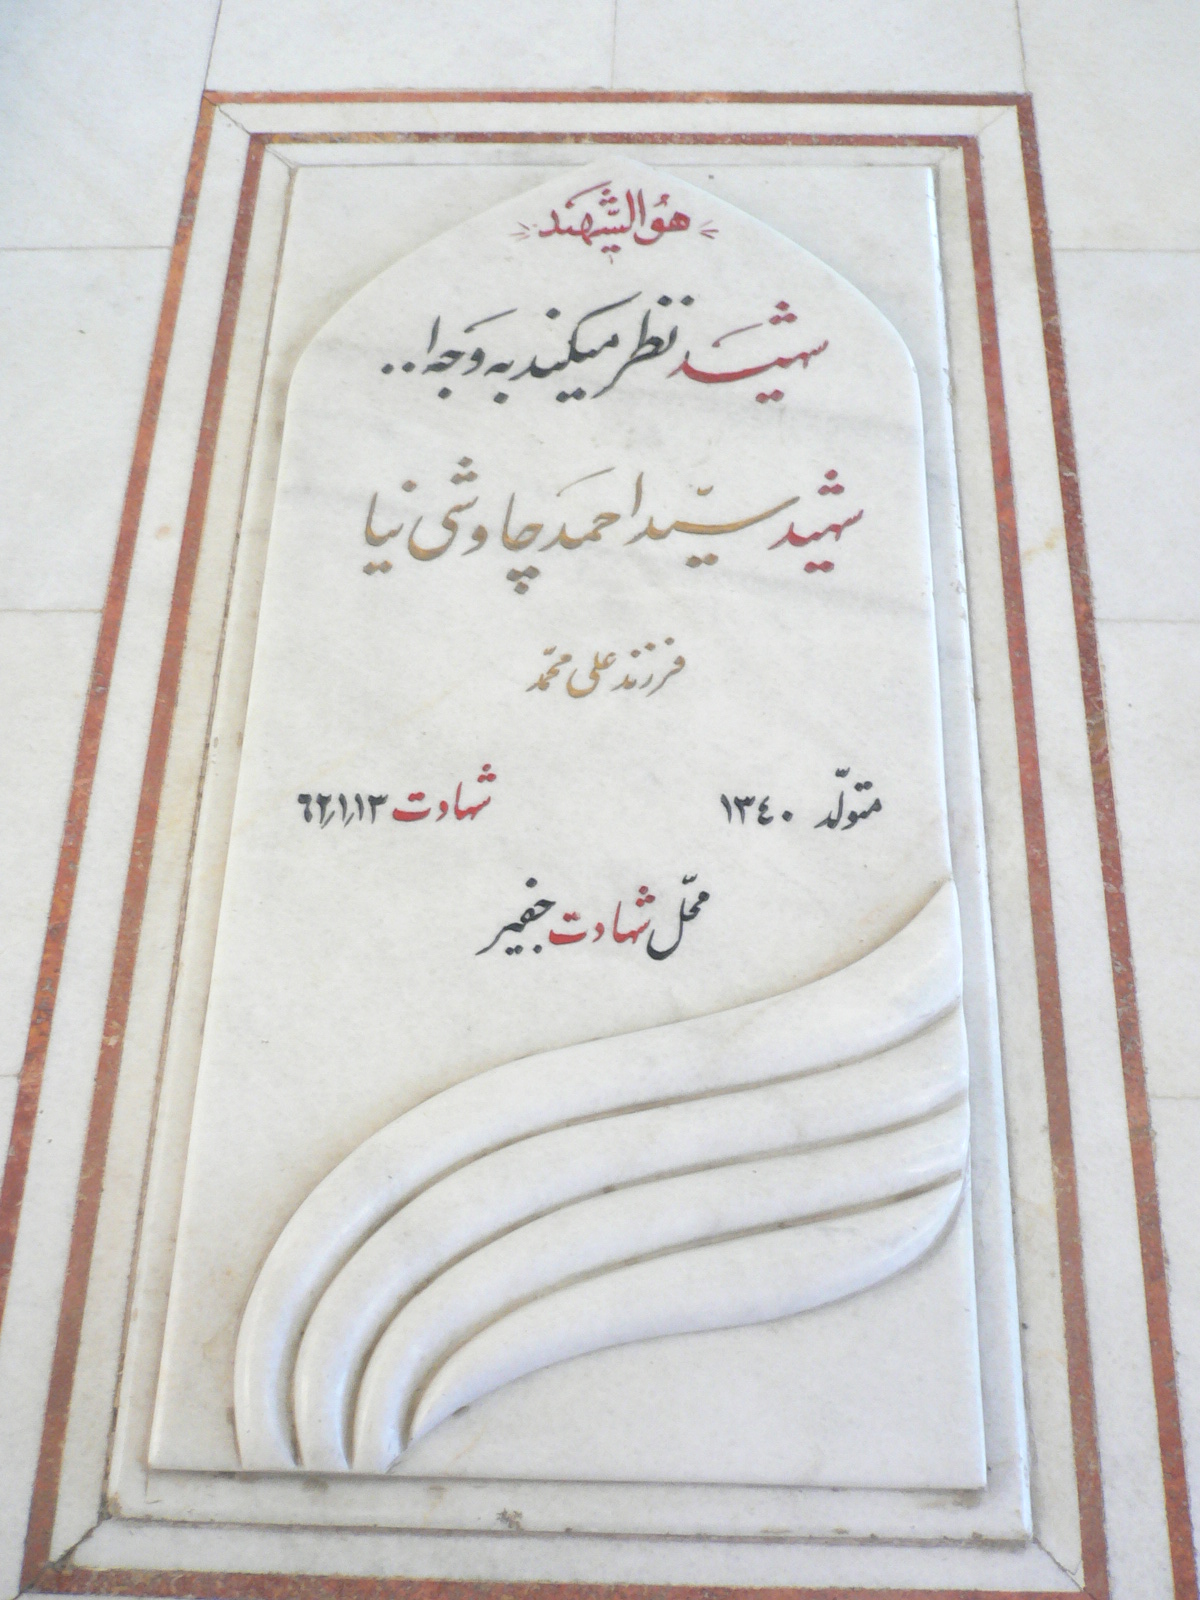 هُوالشَّهید
شهید نظر میکند به وجه ا..
شهید سیّد احمد چاوشی نیا
فرزند علی محمّد
متولّد ١٣٤٠ شهادت ٦٢/١/١٣
محلّ شهادت جفیر